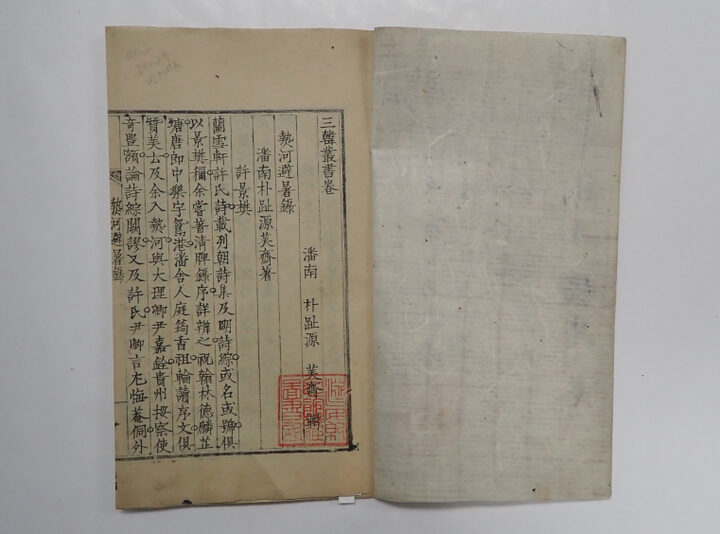 三韓叢書卷
潘南 朴趾源 美齋 輯
熱河避暑錄
潘南朴趾源美齋著
許景樊
蘭雪軒許氏詩載列朝詩集及明詩綜或名或號俱
以景樊稱余嘗著清脾錄序詳辨之祝翰林德麟芷
塘唐郎中樂宇鴛港潘舍人庭筠香祖輪讀序文俱
贊美士及余入熱河與大理卿尹嘉銓貴州按察使
奇豐額論詩綜闕謬又及許氏尹卿言尤悔菴侗外
熱河避暑錄